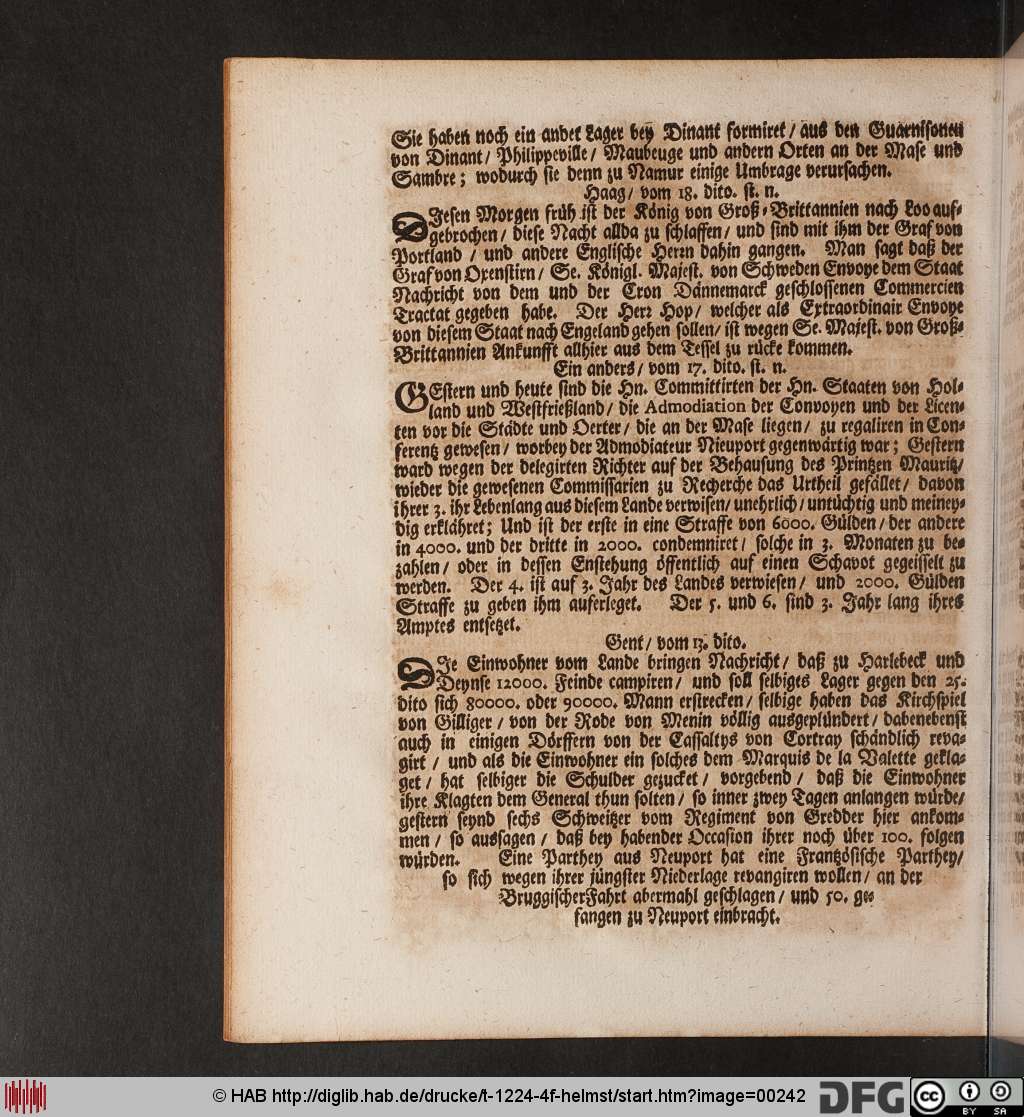 Sie haben noch ein andet Lager bey Dinant formiret / aus den Guarnisonen
von Dinant / Philippeville / Maubeuge und andern Orten an der Mase und
Sambre ; wodurch sie denn zu Namur einige Umbrage verursachen.
Haag / vom 18. dito. st. n.
DIesen Morgen früh ist der König von Groß-Brittannien nach Loo auf-
gebrochen / diese Nacht allda zu schlaffen / und sind mit ihm der Graf von
Portland / und andere Englische Herrn dahin gangen. Man sagt daß der
Graf von Oxenstirn / Se. Königl. Majest. von Schweden Envoye dem Staat
Nachricht von dem und der Cron Dännemarck geschlossenen Commercien
Tractat gegeben habe. Der Herr Hop / welcher als Extraordinair Envoye
von diesem Staat nach Engeland gehen sollen / ist wegen Se. Majest. von Groß-
Brittannien Ankunfft allhier aus dem Tessel zu rücke kommen.
Ein anders / vom 17. dito. st. n.
GEstern und heute sind die Hn. Committirten der Hn. Staaten von Hol-
land und Westfrießland / die Admodiation der Convoyen und der Licen-
ten vor die Städte und Oerter / die an der Mase liegen / zu regaliren in Con-
ferentz gewesen / worbey der Admodiateur Nieuport gegenwärtig war ; Gestern
ward wegen der delegirten Richter auf der Behausung des Printzen Mauritz /
wieder die gewesenen Commissarien zu Recherche das Urtheil gefället / davon
ihrer 3. ihr Lebenlang aus diesem Lande verwisen / unehrlich / untüchtig und meiney-
dig erklähret ; Und ist der erste in eine Straffe von 6000. Gülden / der andere
in 4000. und der dritte in 2000. condemniret / solche in 3. Monaten zu be-
zahlen / oder in dessen Enstehung öffentlich auf einen Schavot gegeisselt zu
werden. Der 4. ist auf 3. Jahr des Landes verwiesen / und 2000. Gülden
Straffe zu geben ihm auferleget. Der 5. und 6. sind 3. Jahr lang ihres
Amptes entsetzet.
Gent / vom 13. dito.
DIe Einwohner vom Lande bringen Nachricht / daß zu Harlebeck und
Deynse 12000. Feinde campiren / und soll selbiges Lager gegen den 25.
dito sich 80000. oder 90000. Mann erstrecken / selbige haben das Kirchspiel
von Gilliger / von der Rode von Menin völlig ausgeplündert / dabenebenst
auch in einigen Dörffern von der Cassaltys von Cortray schändlich reva-
girt / und als die Einwohner ein solches dem Marquis de la Valette gekla-
get / hat selbiger die Schulder gezucket / vorgebend / daß die Einwohner
ihre Klagten dem General thun solten / so inner zwey Tagen anlangen würde /
gestern seynd sechs Schweitzer vom Regiment von Gredder hier ankom-
men / so aussagen / daß bey habender Occasion ihrer noch über 100. folgen
würden. Eine Parthey aus Neuport hat eine Frantzösische Parthey /
so sich wegen ihrer jüngster Niederlage revangiren wollen / an der
Bruggischer Fahrt abermahl geschlagen / und 50. ge-
fangen zu Neuport einbracht.
© HAB http://diglib.hab.de/drucke/t-1224-4f-helmst/start.htm?image=00242
DFG
cc BY SA